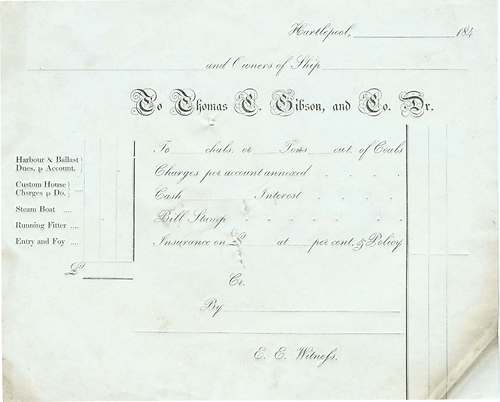 Hartlepool, 184
and Owners of Ship
To Thomas C. Gibson, and Co. Dr.
To chals. or Tons cwt. of Coals
Harbour & Ballast
Dues, p Account.
Charges per account annexed
Custom House
Charges p Do.
Cash Interest
Steam Boat ....
Bill Stamp
Running Fitter ....
Insurance on £ at per cent. & Policy
Entry and Foy ....
£
Cr.
By
E. E. Witness.